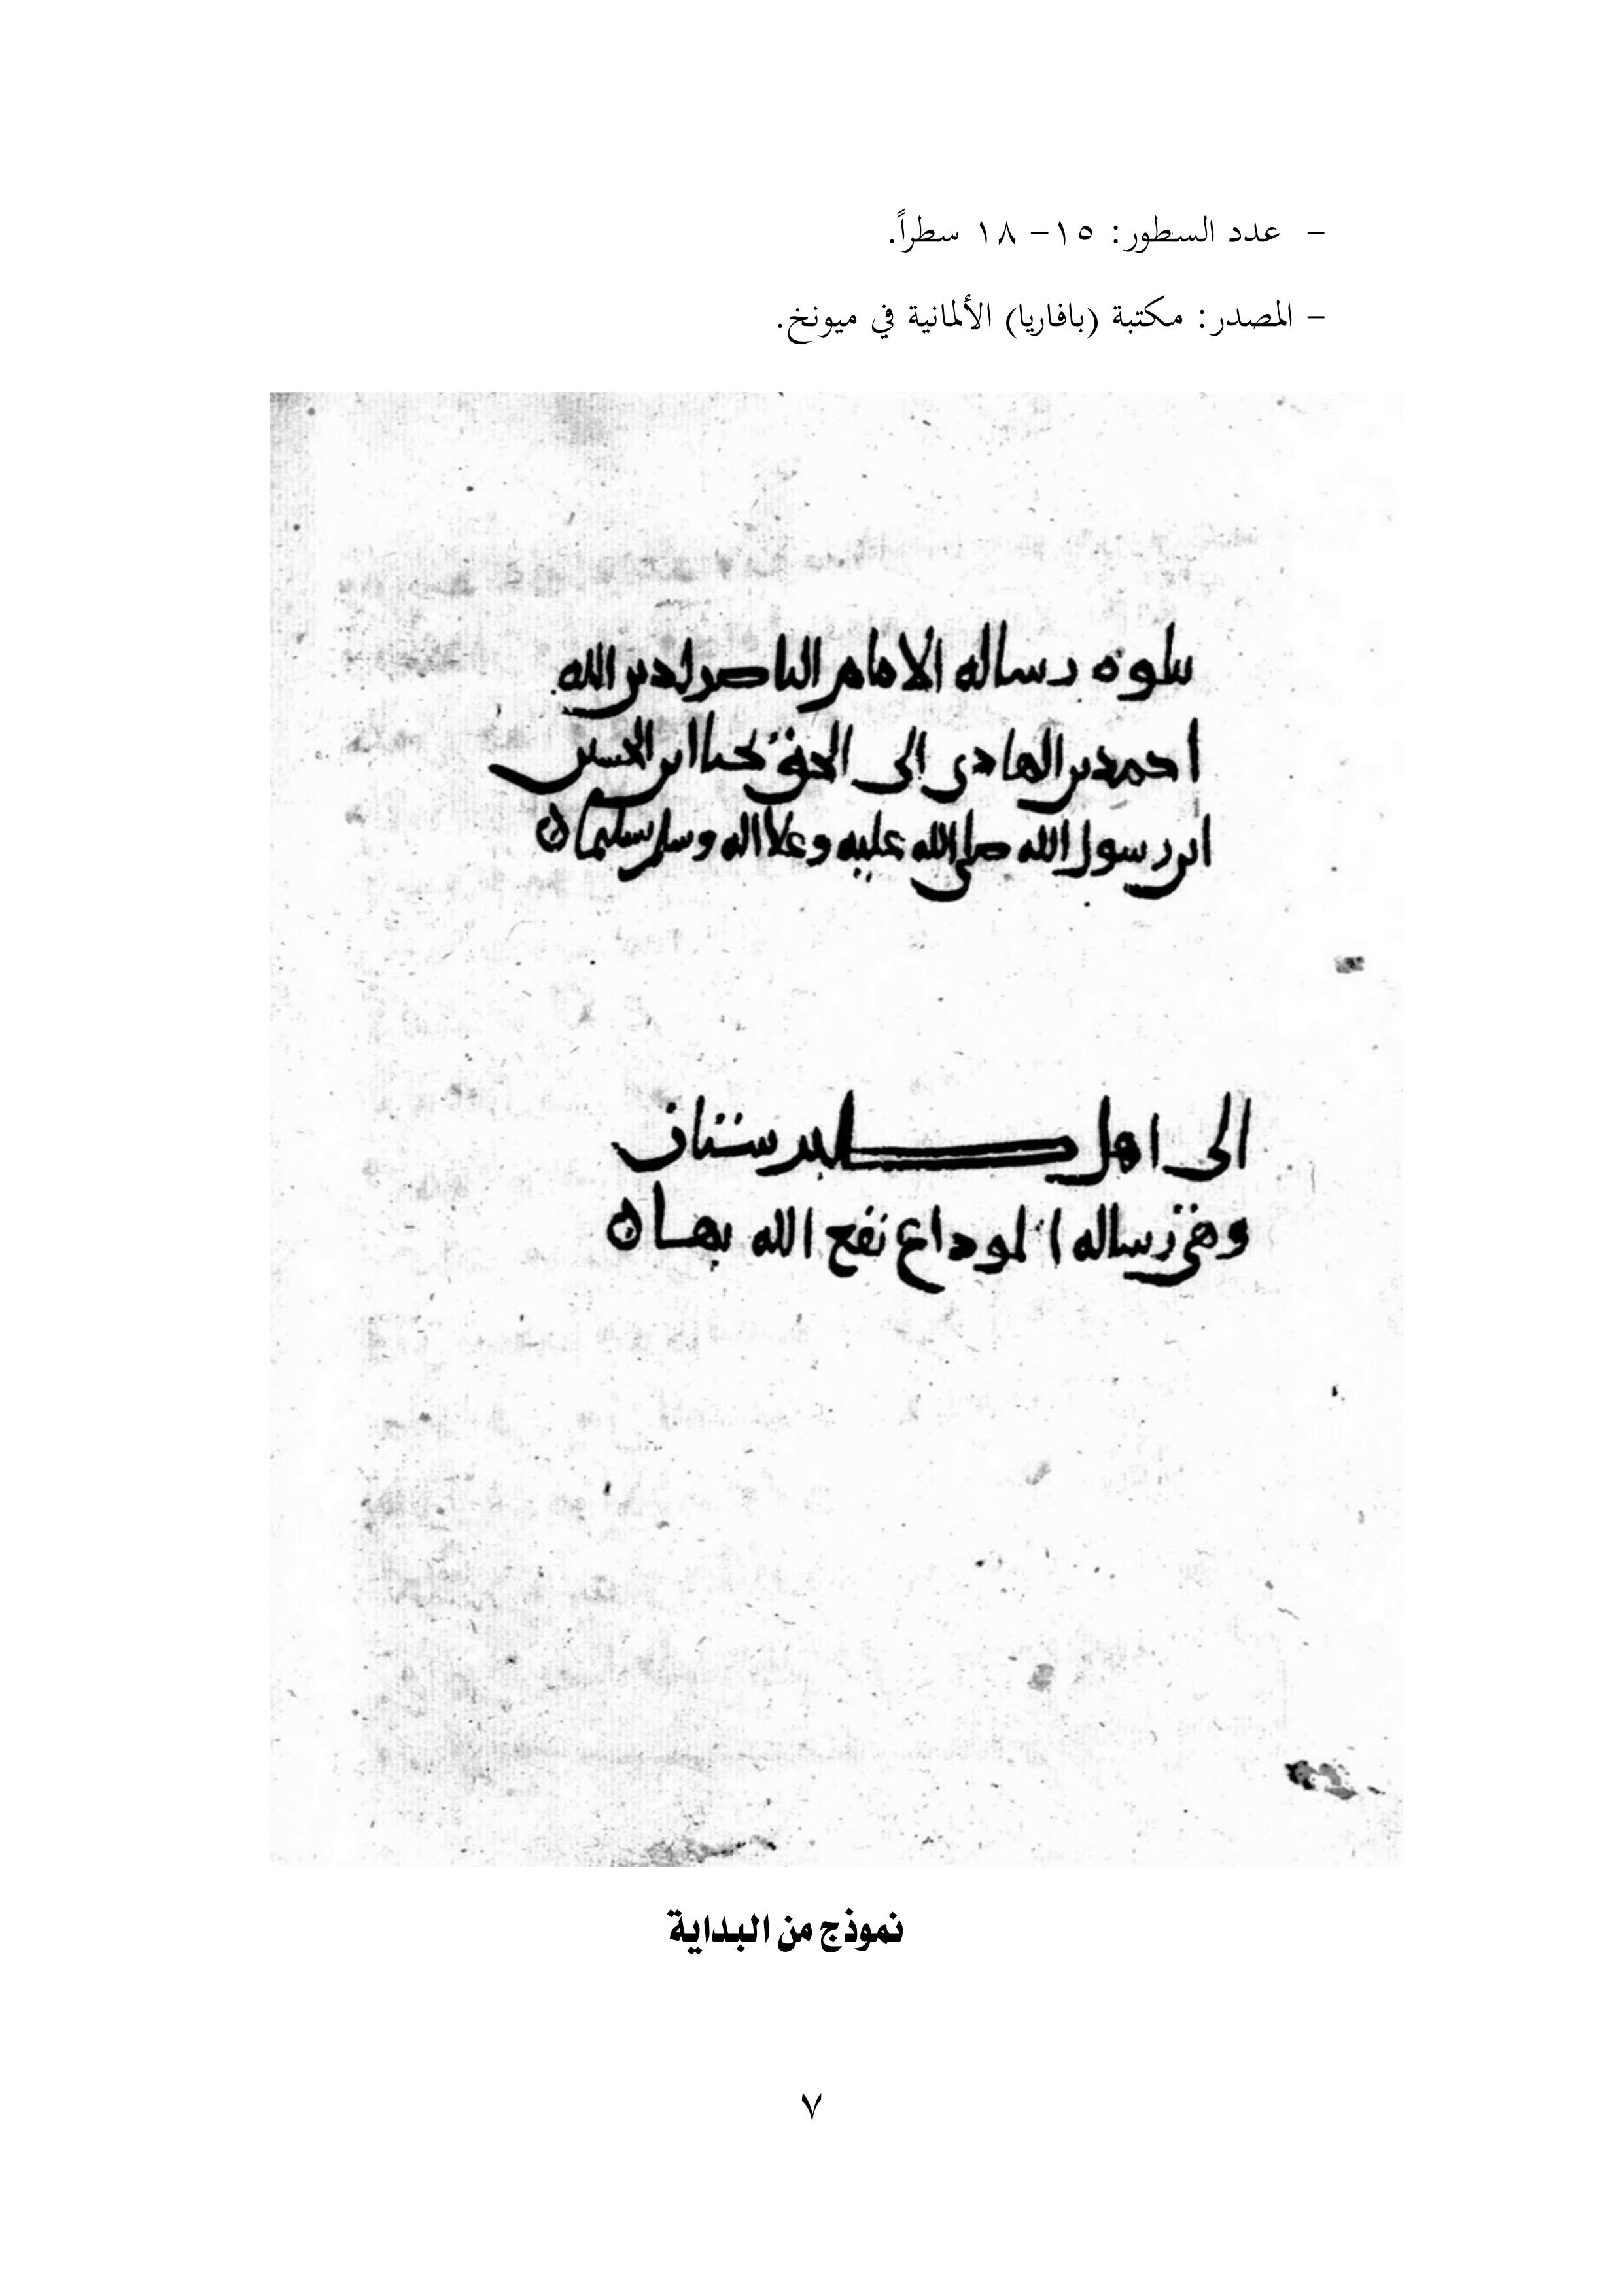 - عدد السطور: ١٥- ١٨ سطراً.
- المصدر: مكتبة (بافاريا) الألمانية في ميونخ.
يتلوه رساله الامام الناصر لدين الله
احمد بن الهادي الى الحق يحيا ابن الحسين
ابن رسول الله صلى الله عليه وعلا اله وسلم تسليما
الى اهل طبرستان
وهي رساله الموداع نفع الله بها
نموذج من البداية
٧